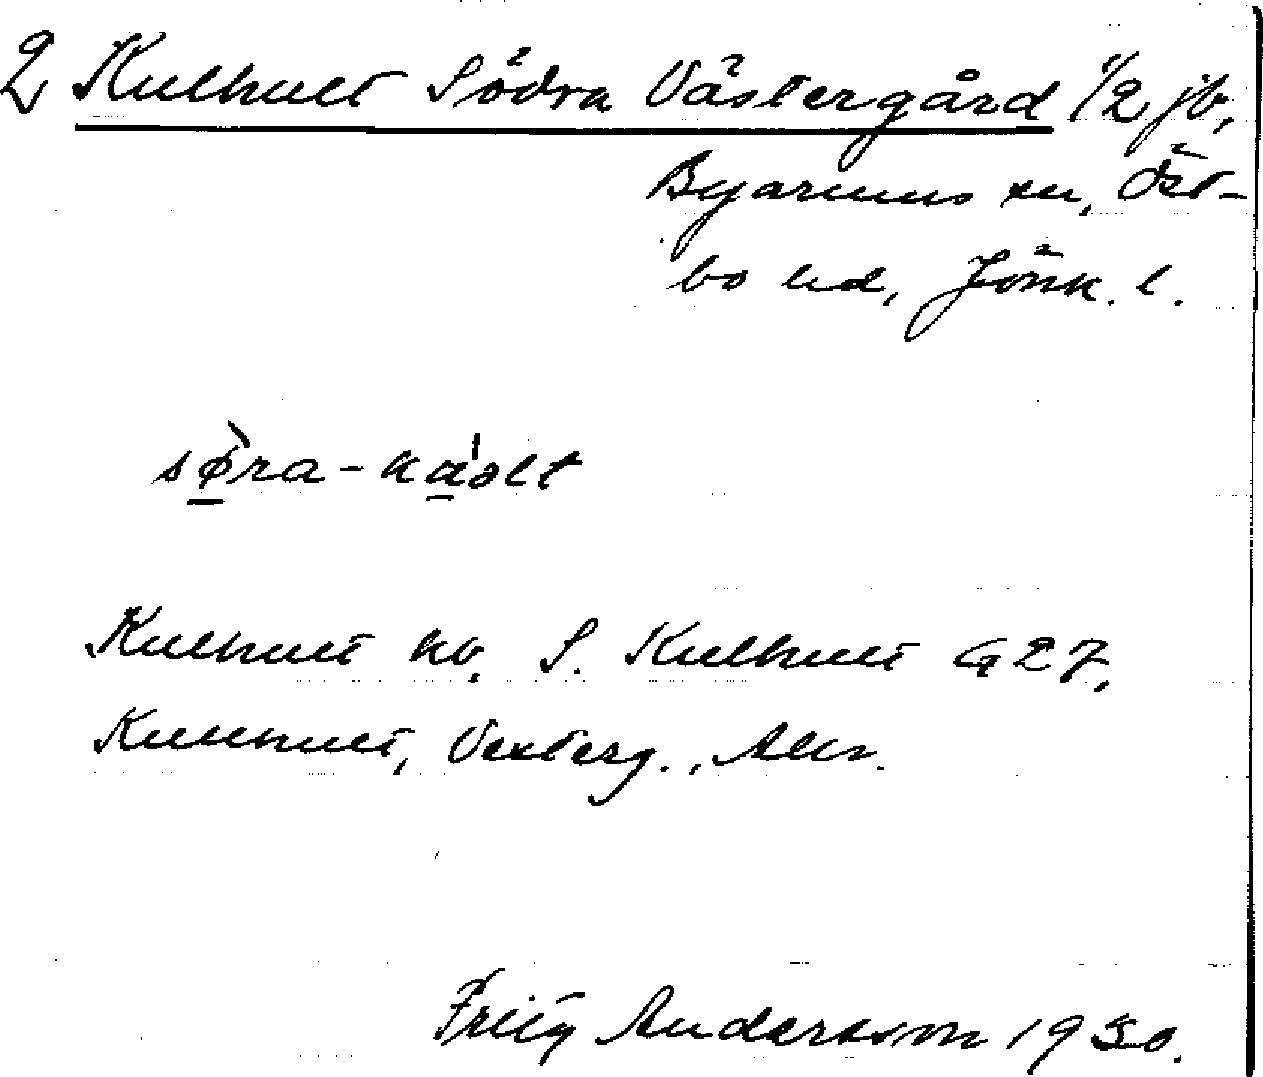 2 Kulhult Södra Västergård 1/2 jb,
Byarums sn, Öst-
bo hd, Jönk. l.
søra-kaəlt
Kulhult kb, S. Kulhult G 27,
Kullhult, Vesterg., Akr.
Fritz Andersson 1930.